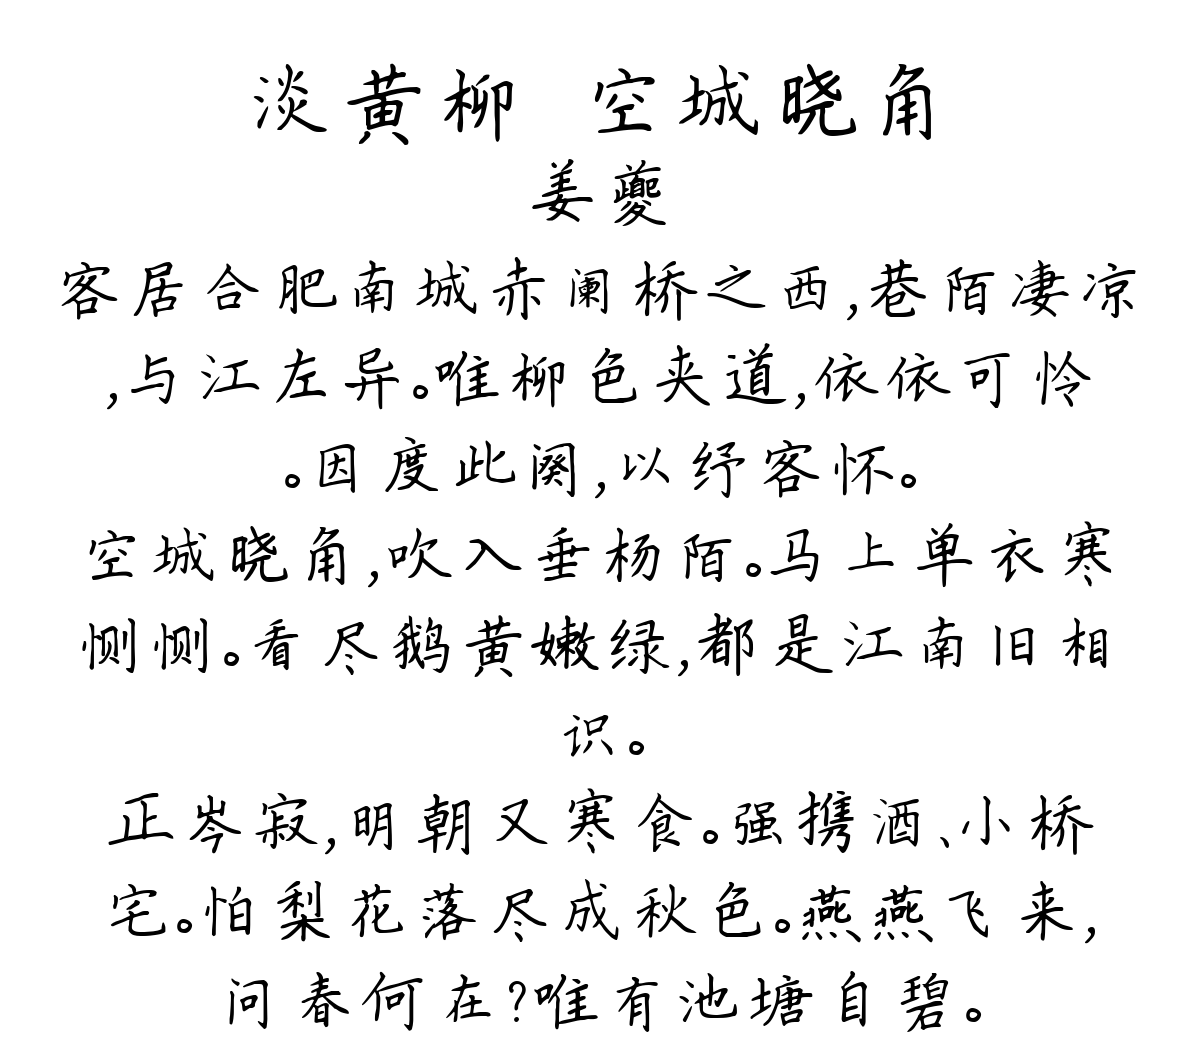 淡黄柳 空城晓角
姜夔
客居合肥南城赤阑桥之西,巷陌凄凉
,与江左异。唯柳色夹道,依依可怜
。因度此阕,以纾客怀。
空城晓角,吹入垂杨陌。马上单衣寒
恻恻。看尽鹅黄嫩绿,都是江南旧相
识。
正岑寂,明朝又寒食。强携酒、小桥
宅。怕梨花落尽成秋色。燕燕飞来,
问春何在?唯有池塘自碧。